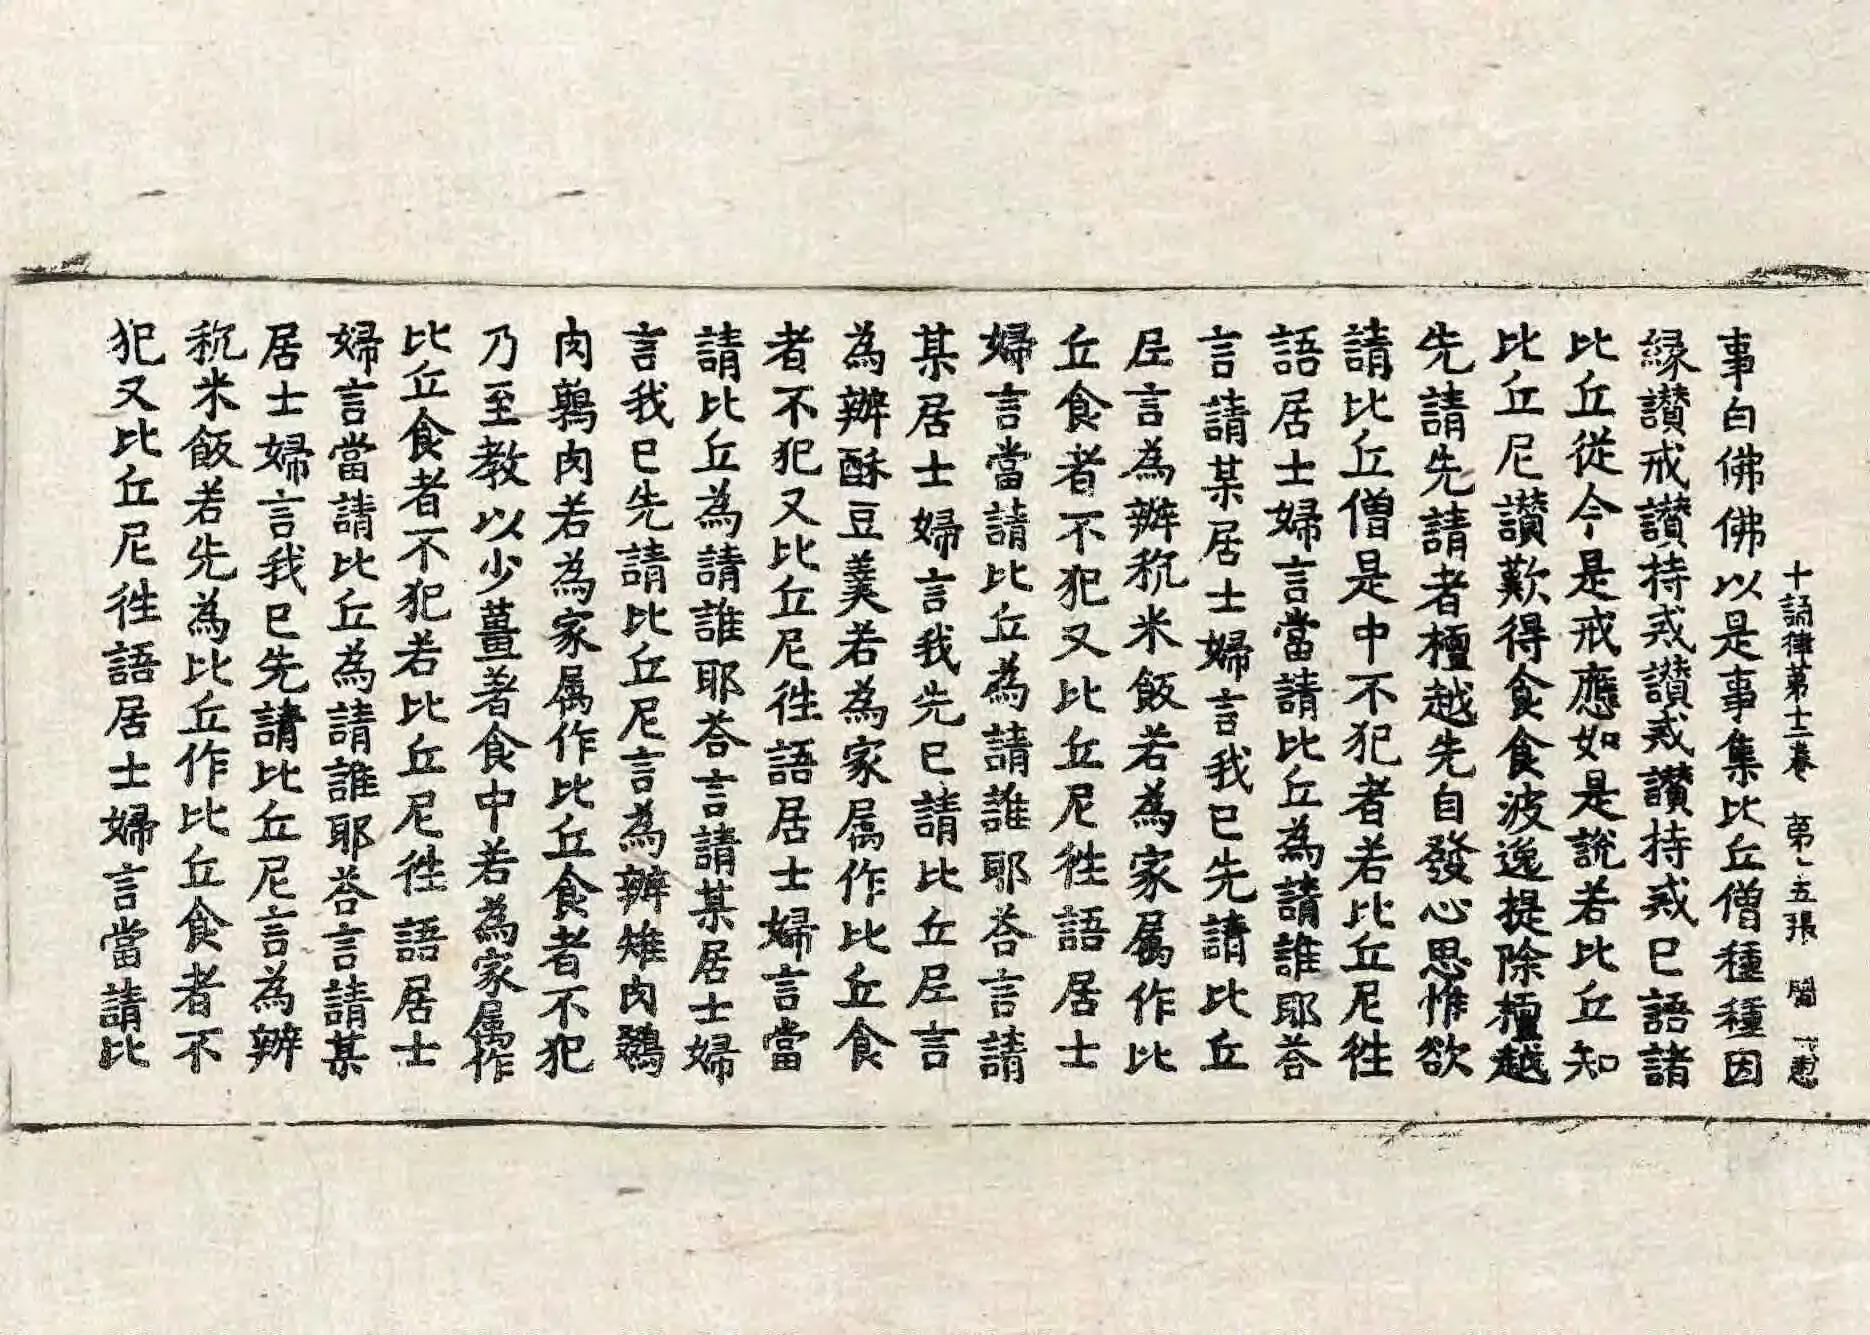 十誦律第十二卷 第十五張
事白佛佛以是事集比丘僧種種因
緣讃戒讃持戒讃戒讃持戒已語諸
比丘從今是戒應如是說若比丘知
比丘尼讃歎得食食波逸提除檀越
先請先請者檀越先自發心思惟欲
請比丘僧是中不犯者若比丘尼徃
語居士婦言當請比丘為請誰耶荅
言請某居士婦言我已先請比丘
尼言為辦秔米飯若為家属作比
丘食者不犯又比丘尼徃語居士
婦言當請比丘為請誰耶荅言請
某居士婦言我先已請比丘尼言
為辦酥豆羹若為家属作比丘食
者不犯又比丘尼徃語居士婦言當
請比丘為請誰耶荅言請某居士婦
言我已先請比丘尼言為辦雉肉鵽
肉鶉肉若為家属作比丘食者不犯
乃至教以少薑著食中若為家属作
比丘食者不犯若比丘尼徃語居士
婦言當請比丘為請誰耶荅言請某
居士婦言我已先請比丘尼言為辦
秔米飯若先為比丘作比丘食者不
犯又比丘尼徃語居士婦言當請比